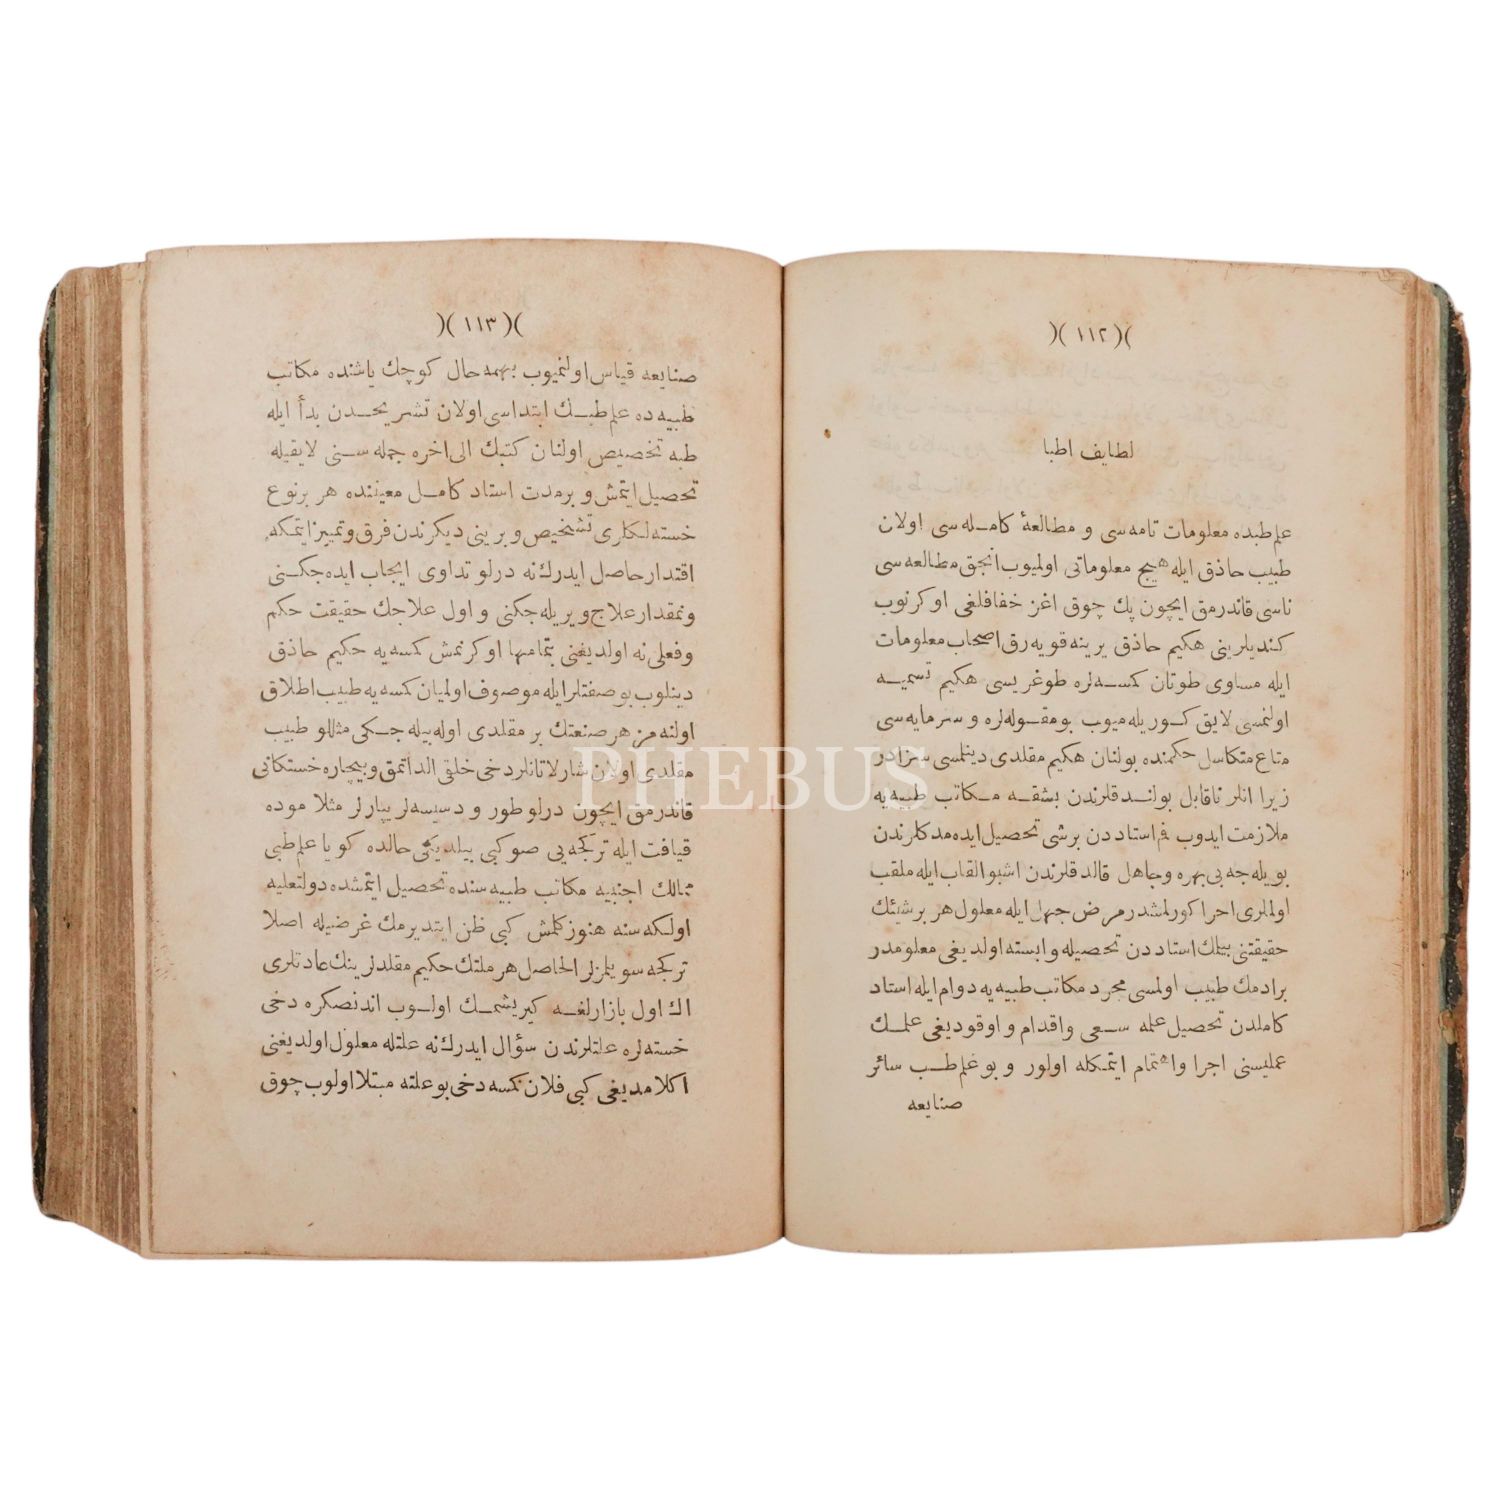 )( ١١٢ )(
لطایف اطبا
علم طبده معلومات تامه سی و مطالعهٔ کامله سی اولان
طبیب حاذق ایله هیچ معلوماتی اولمیوب انجق مطالعه سی
ناسی قاندرمق ایچون پك چوق اغز خفافلغی اوکرنوب
کندیلرینی حکیم حاذق یرینه قویه رق اصحاب معلومات
ایله مساوی طوتان کسه لره طوغریسی حکیم تسمیه
اولنمسی لایق کوریله میوب بومقوله لره و سرمایه سی
متاع متکاسل حکمنده بولنان حکیم مقلدی دینلمسی سزادر
زیرا انلر ناقابل بولندقلرندن بشقه مکاتب طبیه یه
ملازمت ایدوب فم استاددن برشی تحصیل ایده مدکلرندن
بویله جه بی بهره وجاهل قالدقلرندن اشبو القاب ایله ملقب
اولملری احرا کورلمشدر مرض جهل ایله معلول هر برشیئك
حقیقتنی بیلك استاددن تحصیله وابسته اولدیغی معلومدر
برادمك طبیب اولمسی مجرد مکاتب طبیه یه دوام ایله استاد
کاملدن تحصیل علمه سعی واقدام و اوقودیغی علمك
عملیسنی اجرا واهتمام ایتمکله اولور و بوعلم طب سائر
صنایعه
)( ١١٣ )(
صنایعه قیاس اولنمیوب بهمه حال کوچك یاشنده مکاتب
طبیه ده علم طبك ابتداسی اولان تشریحدن بدأ ایله
طبه تخصیص اولنان کتبك الی اخره جمله سنی لایقیله
تحصیل ایتمش و برمدت استاد کامل معیتنده هر برنوع
خسته لکلری تشخیص و برینی دیکرندن فرق وتمییز ایتمکه
اقتدار حاصل ایدرك نه درلو تداوی ایجاب ایده جکنی
ونمقدار علاج ویریله جکنی و اول علاجك حقیقت حکم
وفعلی نه اولدیغنی بتمامها اوکرنمش کسه یه حکیم حاذق
دینلوب بوصفتلر ایله موصوف اولمیان کسه یه طبیب اطلاق
اولنه مز هر صنعتك بر مقلدی اوله بیله جکی مثللو طبیب
مقلدی اولان شارلاتانلر دخی خلقی الداتمق و بیچاره خستکانی
قاندرمق ایچون درلو طور و دسیسه لر یپارلر مثلا موده
قیافت ایله ترکجه یی صوکبی بیلدیکی حالده کویا علم طبی
ممالك اجنبیه مکاتب طبیه سنده تحصیل ایتمشده دولتعلیه
اولکه سنه هنوز کلمش کبی ظن ایتدیرمك غرضیله اصلا
ترکجه سویلمزلر الحاصل هر ملتك حکیم مقلدلرینك عادتلری
اك اول بازارلغه کیریشمك اولوب اندنصکره دخی
خسته لره علتلرندن سؤال ایدرك نه علتله معلول اولدیغنی
اکلامدیغی کبی فلان کسه دخی بوعلته مبتلا اولوب چوق
PHEBUS